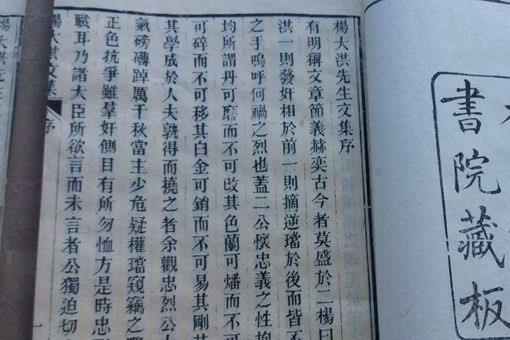 書院藏板
楊大洪先生文集序
有明稱文章節義赫奕古今者莫盛於二楊曰
洪一則發奸相於前一則摘逆璫於後而皆不
之手嗚呼何禍之烈也蓋二公懷忠義之性
均所謂丹可磨而不可改其色蘭可燔而不可
可碎而不可移其白金可銷而不可易其剛其
其學成於人夫孰得而撓之者余觀忠烈公人
氣磅礴踔厲千秋當主少危疑權璫窺竊之
正色抗爭雖羣奸側目有所勿恤方是時忠
戰耳乃諸大臣所欲言而未言者公獨迫切
楊大洪文集 序 一